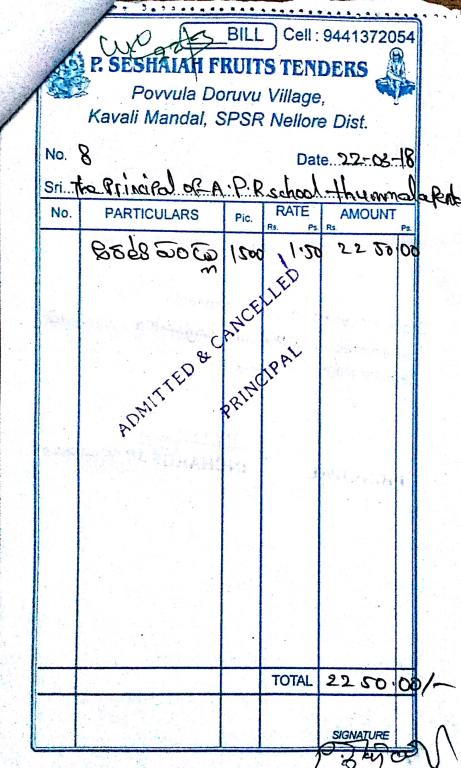 BILL Cell : 9441372054
P. SESHAIAH FRUITS TENDERS
Povvula Doruvu Village,
Kavali Mandal, SPSR Nellore Dist.
No. 8 Date..22-03-18
Sri..the Principal of A.P.R school
No. PARTICULARS Pic. RATE AMOUNT
Rs. Ps. Rs. Ps.
అరటి పండ్లు 1500 1.50 2250.00
ADMITTED & CANCELLED
PRINCIPAL
TOTAL 2250.00/-
SIGNATURE